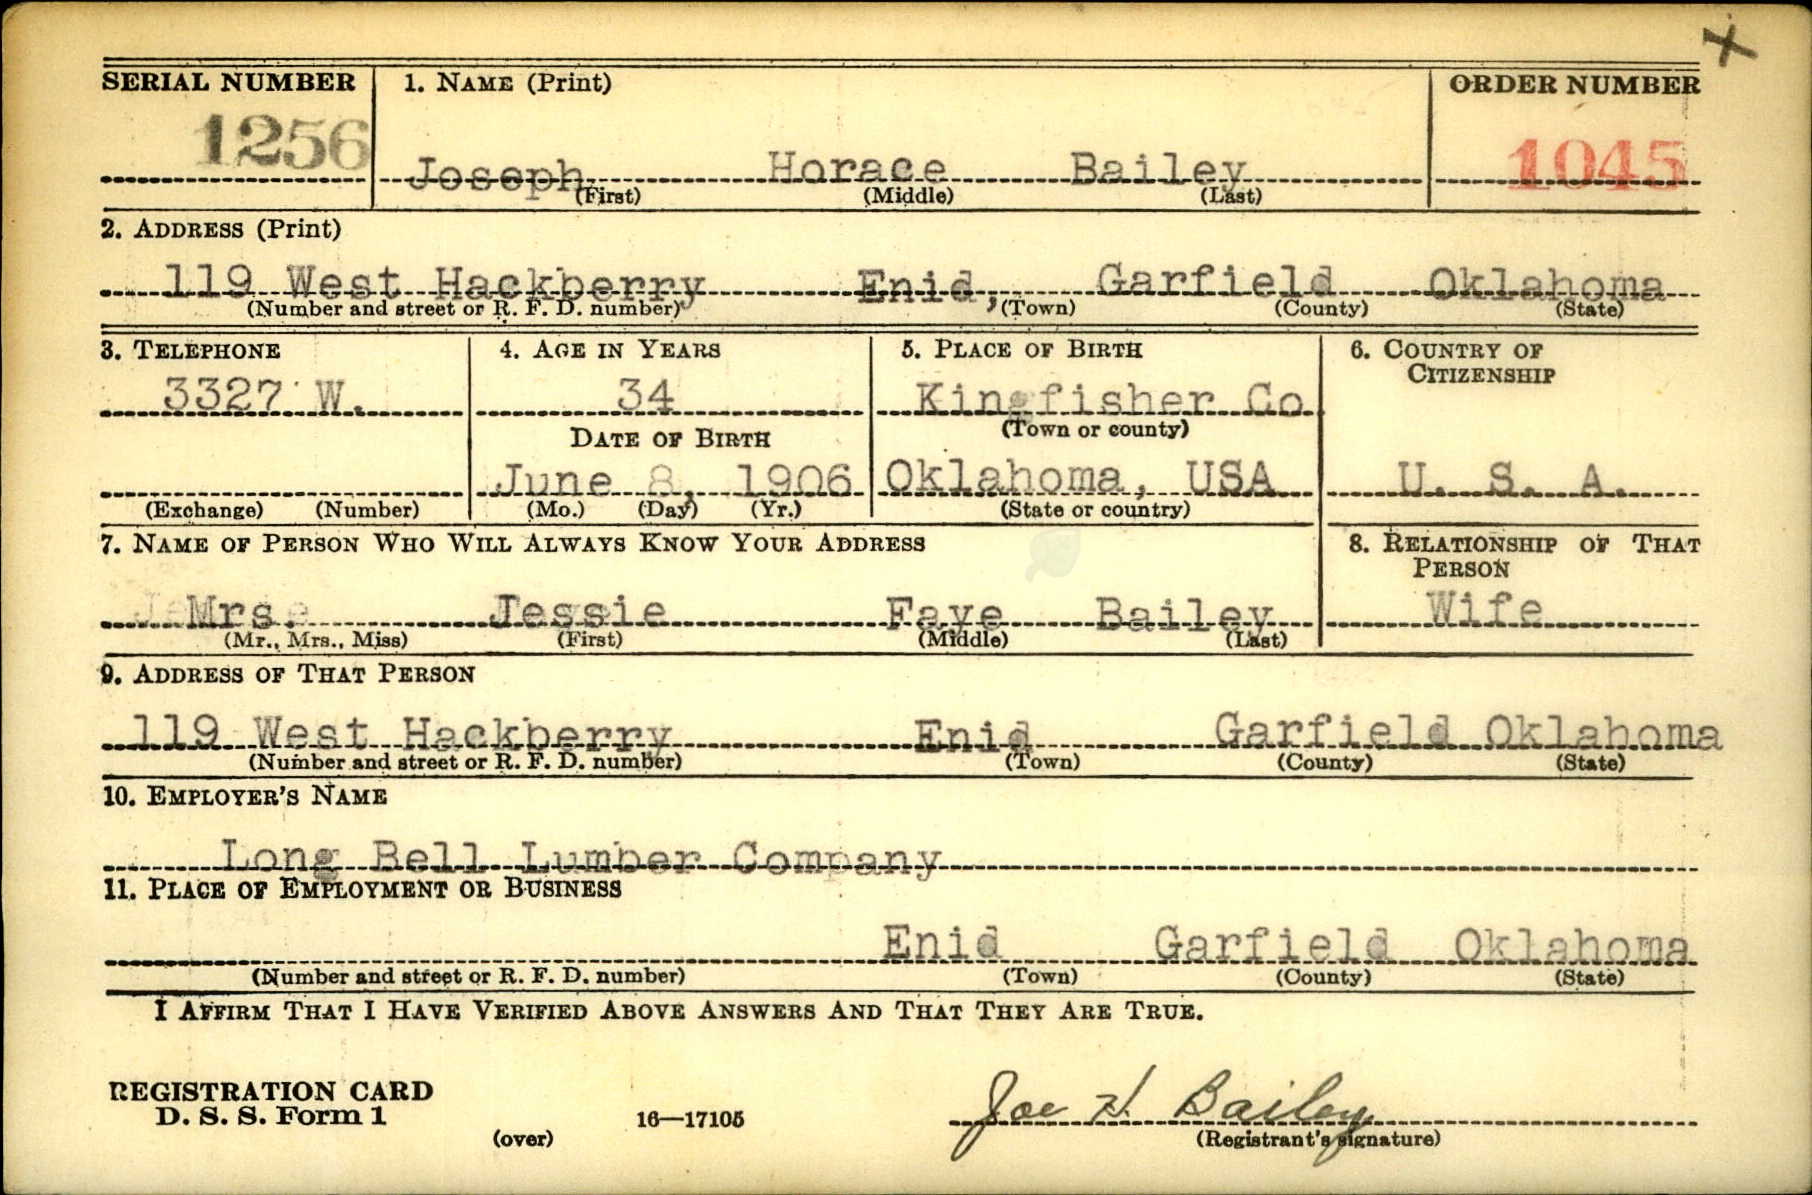 SERIAL NUMBER 1. NAME (Print) ORDER NUMBER
1256 Joseph Horace Bailey 1045
(First) (Middle) (Last)
2. ADDRESS (Print)
119 West Hackberry Enid, Garfield Oklahoma
(Number and street or R. F. D. number) (Town) (County) (State)
3. TELEPHONE 4. AGE IN YEARS 5. PLACE OF BIRTH 6. COUNTRY OF CITIZENSHIP
3327 W. 34 Kingfisher Co
DATE OF BIRTH (Town or county)
June 8, 1906 Oklahoma, USA U. S. A.
(Exchange) (Number) (Mo.) (Day) (Yr.) (State or country)
7. NAME OF PERSON WHO WILL ALWAYS KNOW YOUR ADDRESS 8. RELATIONSHIP OF THAT PERSON
Mrs. Jessie Faye Bailey Wife
(Mr., Mrs., Miss) (First) (Middle) (Last)
9. ADDRESS OF THAT PERSON
119 West Hackberry Enid Garfield Oklahoma
(Number and street or R. F. D. number) (Town) (County) (State)
10. EMPLOYER'S NAME
Long Bell Lumber Company
11. PLACE OF EMPLOYMENT OR BUSINESS
Enid Garfield Oklahoma
(Number and street or R. F. D. number) (Town) (County) (State)
I AFFIRM THAT I HAVE VERIFIED ABOVE ANSWERS AND THAT THEY ARE TRUE.
REGISTRATION CARD
D. S. S. Form 1 16—17105 Joe H. Bailey
(over) (Registrant's signature)